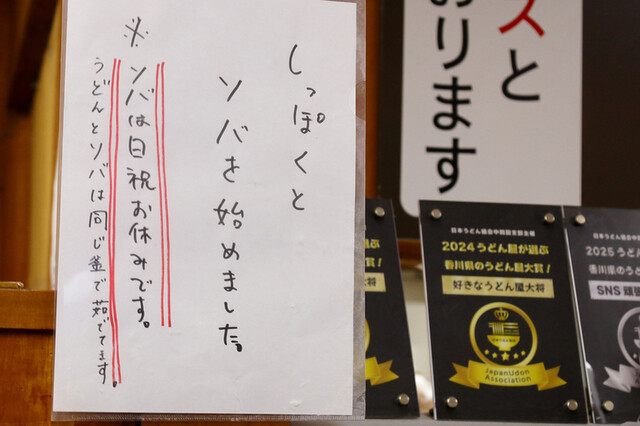 しっぽくと
ソバを始めました。
※ソバは日祝お休みです。
うどんとソバは同じ釜で茹でてます.
スと
おります
日本うどん協会中四国支部主催
2024うどん屋が選ぶ
香川県のうどん屋大賞!
好きなうどん屋大将
JapanUdon
Association
2025うど
香川県の
SNS